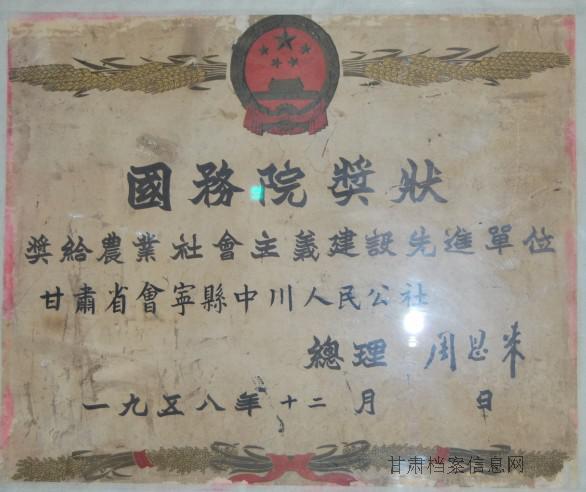 國務院獎狀
獎給農業社會主義建設先進單位
甘肅省會寧縣中川人民公社
總理 周恩来
一九五八年十二月 日
甘肃档案信息网